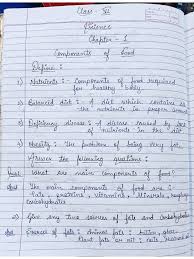 Class - VI
Science
Chapter - 1
Components of food
Define :-
1) Nutrients :- Components of food required
for healthy body.
2) Balanced diet :- A diet which contains all
the nutrients in proper
3) Deficiency disease :- A disease caused by lack
of nutrients in the diet
4) Obesity :- The problem of being very fat.
Answer the following questions :-
What are main components of food?
Ans The main components of food are :-
Fats, proteins, vitamins, Minerals,
Carbohydrates
2) Give any two sources of fats and Carbohydrates
Ans Sources of fats :- Animal fats :- butter,
Plant fats :- oil, nuts